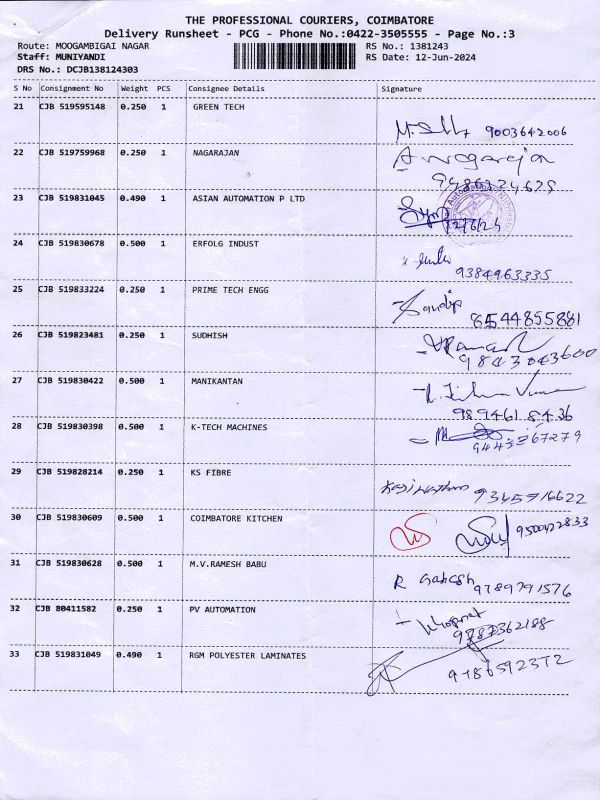 THE PROFESSIONAL COURIERS, COIMBATORE
Delivery Runsheet - PCG - Phone No.:0422-3505555 - Page No.:3
Route: MOOGAMBIGAI NAGAR RS No.: 1381243
Staff: MUNIYANDI RS Date: 12-Jun-2024
DRS No.: DCJB138124303
S No Consignment No Weight PCS Consignee Details Signature
21 CJB 519595148 0.250 1 GREEN TECH
9003642006
22 CJB 519759968 0.250 1 NAGARAJAN
A nagarajan
23 CJB 519831045 0.490 1 ASIAN AUTOMATION P LTD
12/6/24
24 CJB 519830678 0.500 1 ERFOLG INDUST
9384963335
25 CJB 519833224 0.250 1 PRIME TECH ENGG
Sandip
8544855881
26 CJB 519823481 0.250 1 SUDHISH
9843043600
27 CJB 519830422 0.500 1 MANIKANTAN
9894618436
28 CJB 519830398 0.500 1 K-TECH MACHINES
29 CJB 519828214 0.250 1 KS FIBRE
9345716622
30 CJB 519830609 0.500 1 COIMBATORE KITCHEN
9500422833
31 CJB 519830628 0.500 1 M.V.RAMESH BABU
R Ganesh 9789791576
32 CJB 80411582 0.250 1 PV AUTOMATION
9787362188
33 CJB 519831049 0.490 1 RGM POLYESTER LAMINATES
9786592372